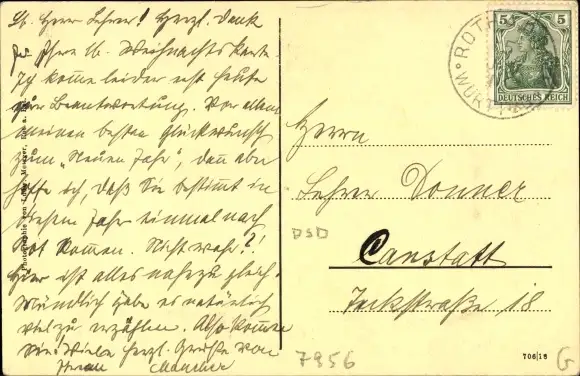 Lb. Herr Lehrer! Herzl. Dank
für Ihre lb. Weihnachtskarte
Ich komme leider erst heute
zur Beantwortung. Vor allem
meinen besten Glückwunsch
zum „Neuen Jahr“, dann aber
hoffe ich, daß Sie bestimmt in
diesem Jahr einmal nach
Rot kommen. Nicht wahr?!
Hier ist alles nahezu gleich.
Mündlich gäbe es natürlich
viel zu erzählen. Also kommen
Sie! Viele herzl. Grüße von
Photographie von
5 5
DEUTSCHES REICH
ROT
WÜRTT
Herrn
Lehrer Donner
PSD
Canstatt
Teckstraße 18
706|18
7956
G